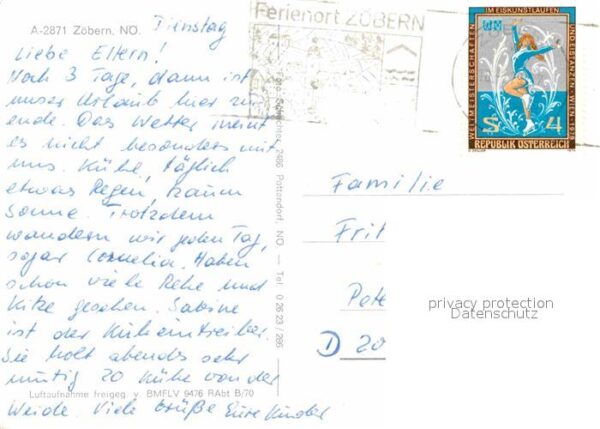 A-2871 Zöbern, NÖ.
Dienstag
Liebe Eltern!
Noch 3 Tage, dann ist
unser Urlaub hier zu
ende. Das Wetter meint
es nicht besonders mit
uns. Kühl, täglich
etwas Regen, kaum
Sonne. Trotzdem
wandern wir jeden Tag,
sogar Cornelia. Haben
schon viele Rehe und
Kitze gesehen. Sabine
ist der Kühemtreiber.
Sie holt abends sehr
mutig 20 Kühe von der
Weide. Viele Grüße Eure Kinder
Luftaufnahme freigeg. v. BMFLV 9476 RAbt B/70
2486 Pottendorf, NÖ. — Tel. 0 26 23 / 295
Ferienort ZÖBERN
WELTMEISTERSCHAFTEN IM EISKUNSTLAUFEN UND EISTANZEN WIEN 1979
S 4
REPUBLIK ÖSTERREICH
Familie
Frit
Pete
D 20
privacy protection
Datenschutz